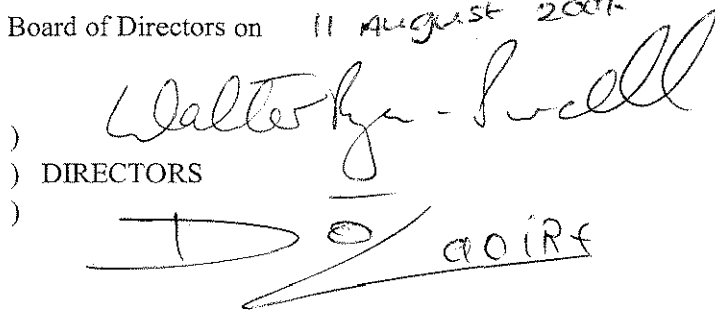 Board of Directors on 11 August
) Walter Ryan-Purcell
) DIRECTORS
)
D Ó Laoire